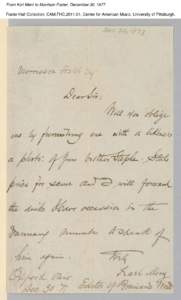 From Karl Merz to Morrison Foster, December 30, 1877
Foster Hall Collection, CAM.FHC.2011.01, Center for American Music, University of Pittsburgh.
Dec 30, 1877
Morrison Foster Esq
Dear Sir:
Will you oblige
me by furnishing me with a likeness
a photo: of your brother Stephen. State
price for same and I will forward
the
January number. A sketch of
him again.
Truly
Karl Merz
Oxford Ohio
Dec 30 77 Editor of Brainard's